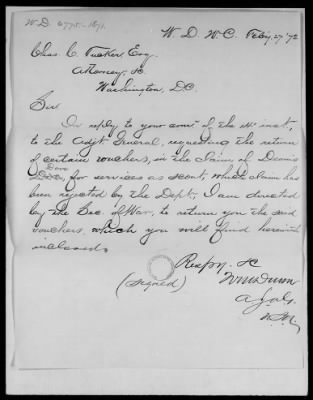 W.D. 6775-1871.
W. D. W.C. Feby 27 '72
Chas. C. Tucker, Esq.
Attorney, &c
Washington, D.C.
Sir
In reply to your com'n of the inst.
to the Adjt General, requesting the return
of certain vouchers, in the claim of Dennis
Dove
for services as scout, which claim has
been rejected by the Dept, I am directed
by the Sec. of War, to return you the said
vouchers, which you will find herewith
inclosed.
Respy. &c
(signed) Wm Dunn